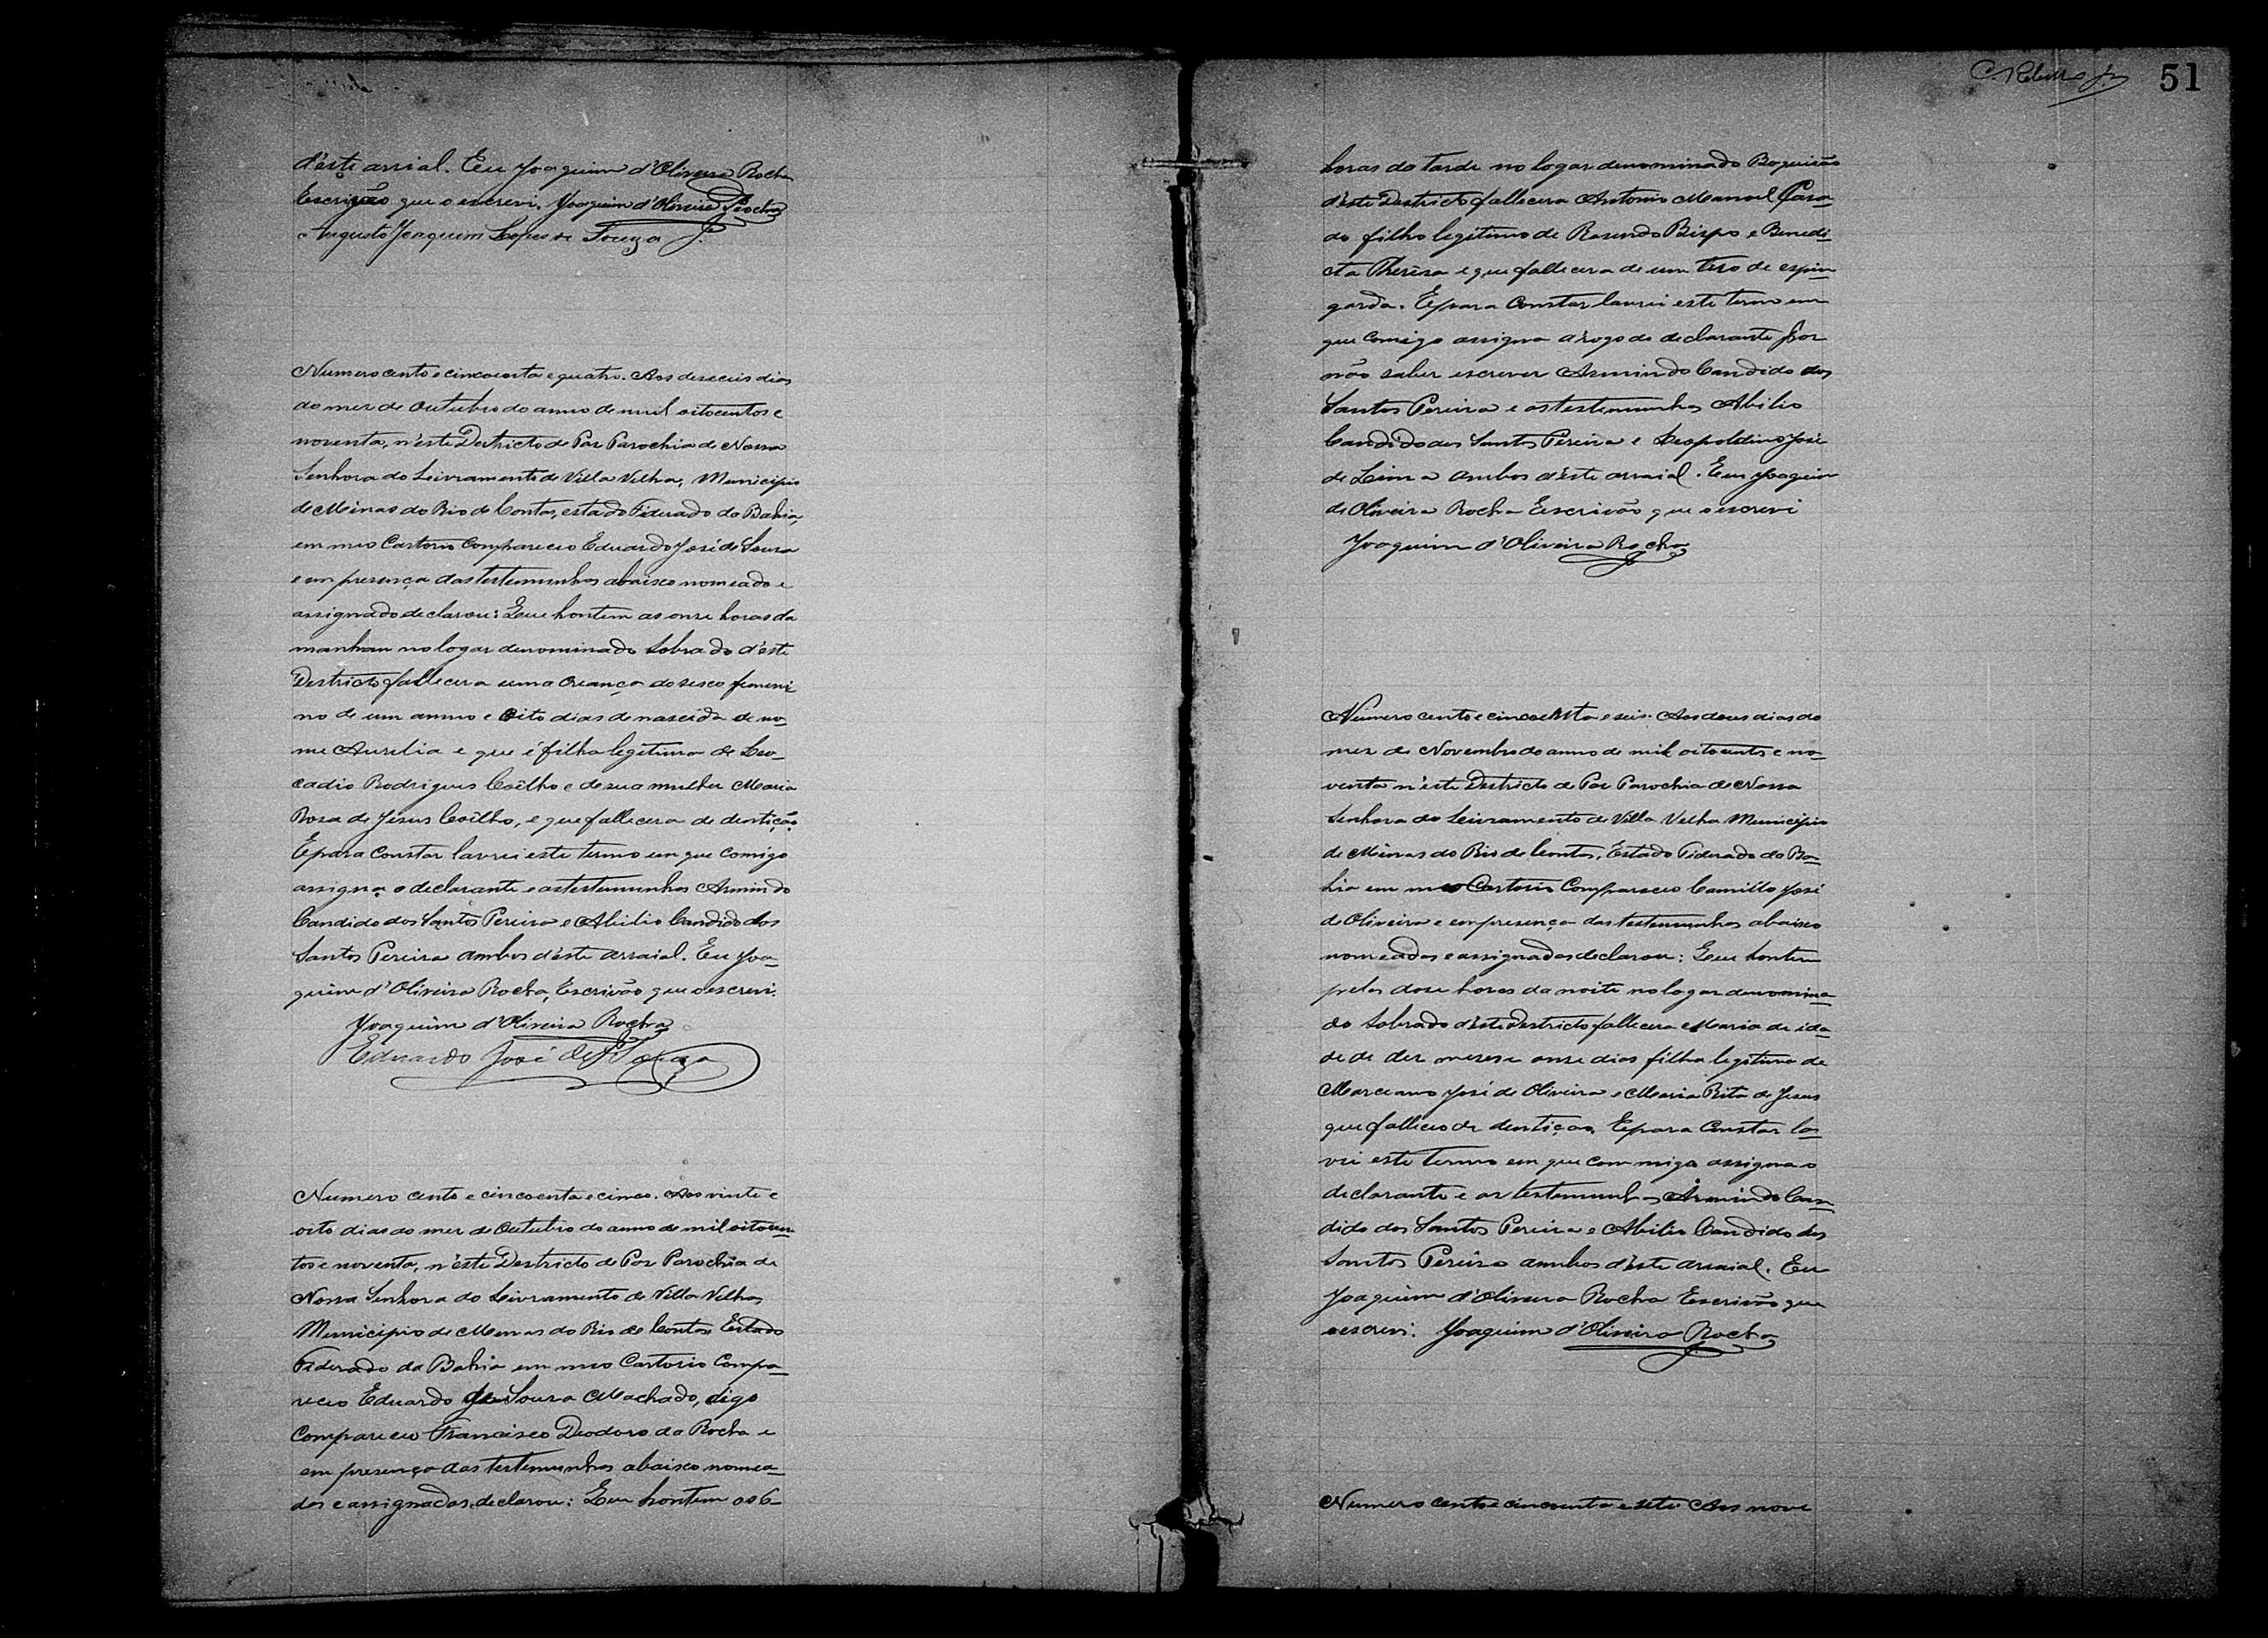 d'este arrial. Eu Joaquim d'Oliveira Rocha
Escrivão que o escrevi. Joaquim d'Oliveira Rocha
Augusto Joaquim Lopes de Souza
Numero cento e cincoenta e quatro. Aos deseceis dias
do mez de Outubro do anno de mil oitocentos e
noventa, n'este Destricto de Paz Parochia de Nossa
Senhora do Livramento de Villa Velha, Municipio
de Minas do Rio de Contas, estado Federado da Bahia,
em meo Cartorio Compareceo Eduardo José de Sousa
e em presença das testemunhas abaixo nomeado e
assignado declarou: Que hontem as onze horas da
manhan no logar denominado Sobrado d'este
Destricto fallecera uma Creança do sexo femeni
no de um anno e oito dias de nascida de no-
me Aurelia e que é filha legitima de Leo-
cadio Rodrigues Coêlho e de sua mulher Maria
Rosa de Jesus Coêlho, e que fallecera de dentição.
E para constar lavrei este termo em que comigo
assigna o declarante e as testemunhas Armindo
Candido dos Santos Pereira e Abilio Candido dos
Santos Pereira ambos d'este arraial. Eu Joa-
quim d'Oliveira Rocha, Escrivão que o escrevi.
Joaquim d'Oliveira Rocha
Eduardo José de Souza
Numero cento e cincoenta e cinco. Aos vinte e
oito dias do mez de Outubro do anno de mil oitocen-
tos e noventa, n'este Destricto de Paz Parochia de
Nossa Senhora do Livramento de Villa Velha,
Municipio de Minas do Rio de Contas Estado
Federado da Bahia em meo Cartorio Compa-
receo Eduardo de Sousa Machado, digo
Compareceo Francisco Deodoro da Rocha e
em presença das testemunhas abaixo nomea-
dos e assignados, declarou: Que hontem as 6-
51
horas da tarde no logar denominado Boqueirão
d'este Destricto fallecera Antonio Manoel Casa-
do filho legitimo de Rosendo Bispo e Benedi-
cta Theresa e que fallecera de um tiro de espin-
garda. E para Constar lavrei este termo em
que comigo assigna a rogo do declarante por
não saber escrever Armindo Candido dos
Santos Pereira e as testemunhas Abilio
Candido dos Santos Pereira e Leopoldino José
de Lima ambos d'este arraial. Eu Joaquim
de Oliveira Rocha Escrivão que o escrevi
Joaquim d'Oliveira Rocha
Numero cento e cincoenta e seis. Aos dous dias do
mez de Novembro do anno de mil oitocentos e no-
venta n'este Destricto de Paz Parochia de Nossa
Senhora do Livramento de Villa Velha Municipio
de Minas do Rio de Contas, Estado Federado da Ba-
hia em meo Cartorio Compareceo Camillo José
de Oliveira e em presença das testemunhas abaixo
nomeadas e assignadas declarou: Que hontem
pelas dose horas da noite no logar denomina-
do Sobrado d'este Destricto fallecera Maria de ida-
de de dez meses e onze dias filha legitima de
Marciano José de Oliveira e Maria Rita de Jesus
que falleceo de dentição. E para Constar la-
vrei este termo em que commigo assigna o
declarante e as testemunhas Armindo Can-
dido dos Santos Pereira e Abilio Candido dos
Santos Pereira ambos d'este arraial. Eu
Joaquim d'Oliveira Rocha Escrivão que
o escrevi. Joaquim d'Oliveira Rocha
Numero cento e cincoenta e sete Aos nove